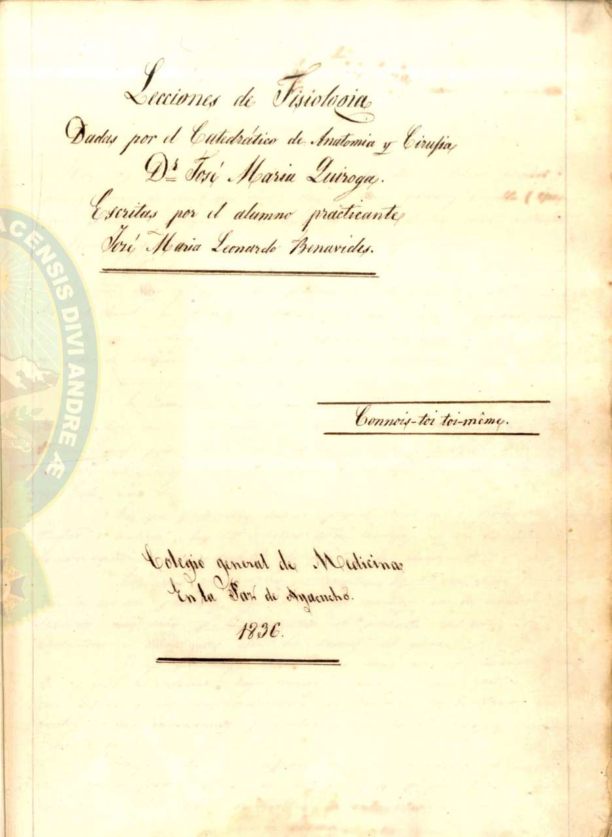 Lecciones de Fisiologia
Dadas por el Catedrático de Anatomia y Cirujia,
Dr. José Maria Quiroga.
Escritas por el alumno practicante,
José Maria Leonardo Benavides.
Connois-toi toi-même.
Colegio general de Medicina
En la Paz de Ayacucho.
1836.
ACENSIS DIVI ANDRE Æ